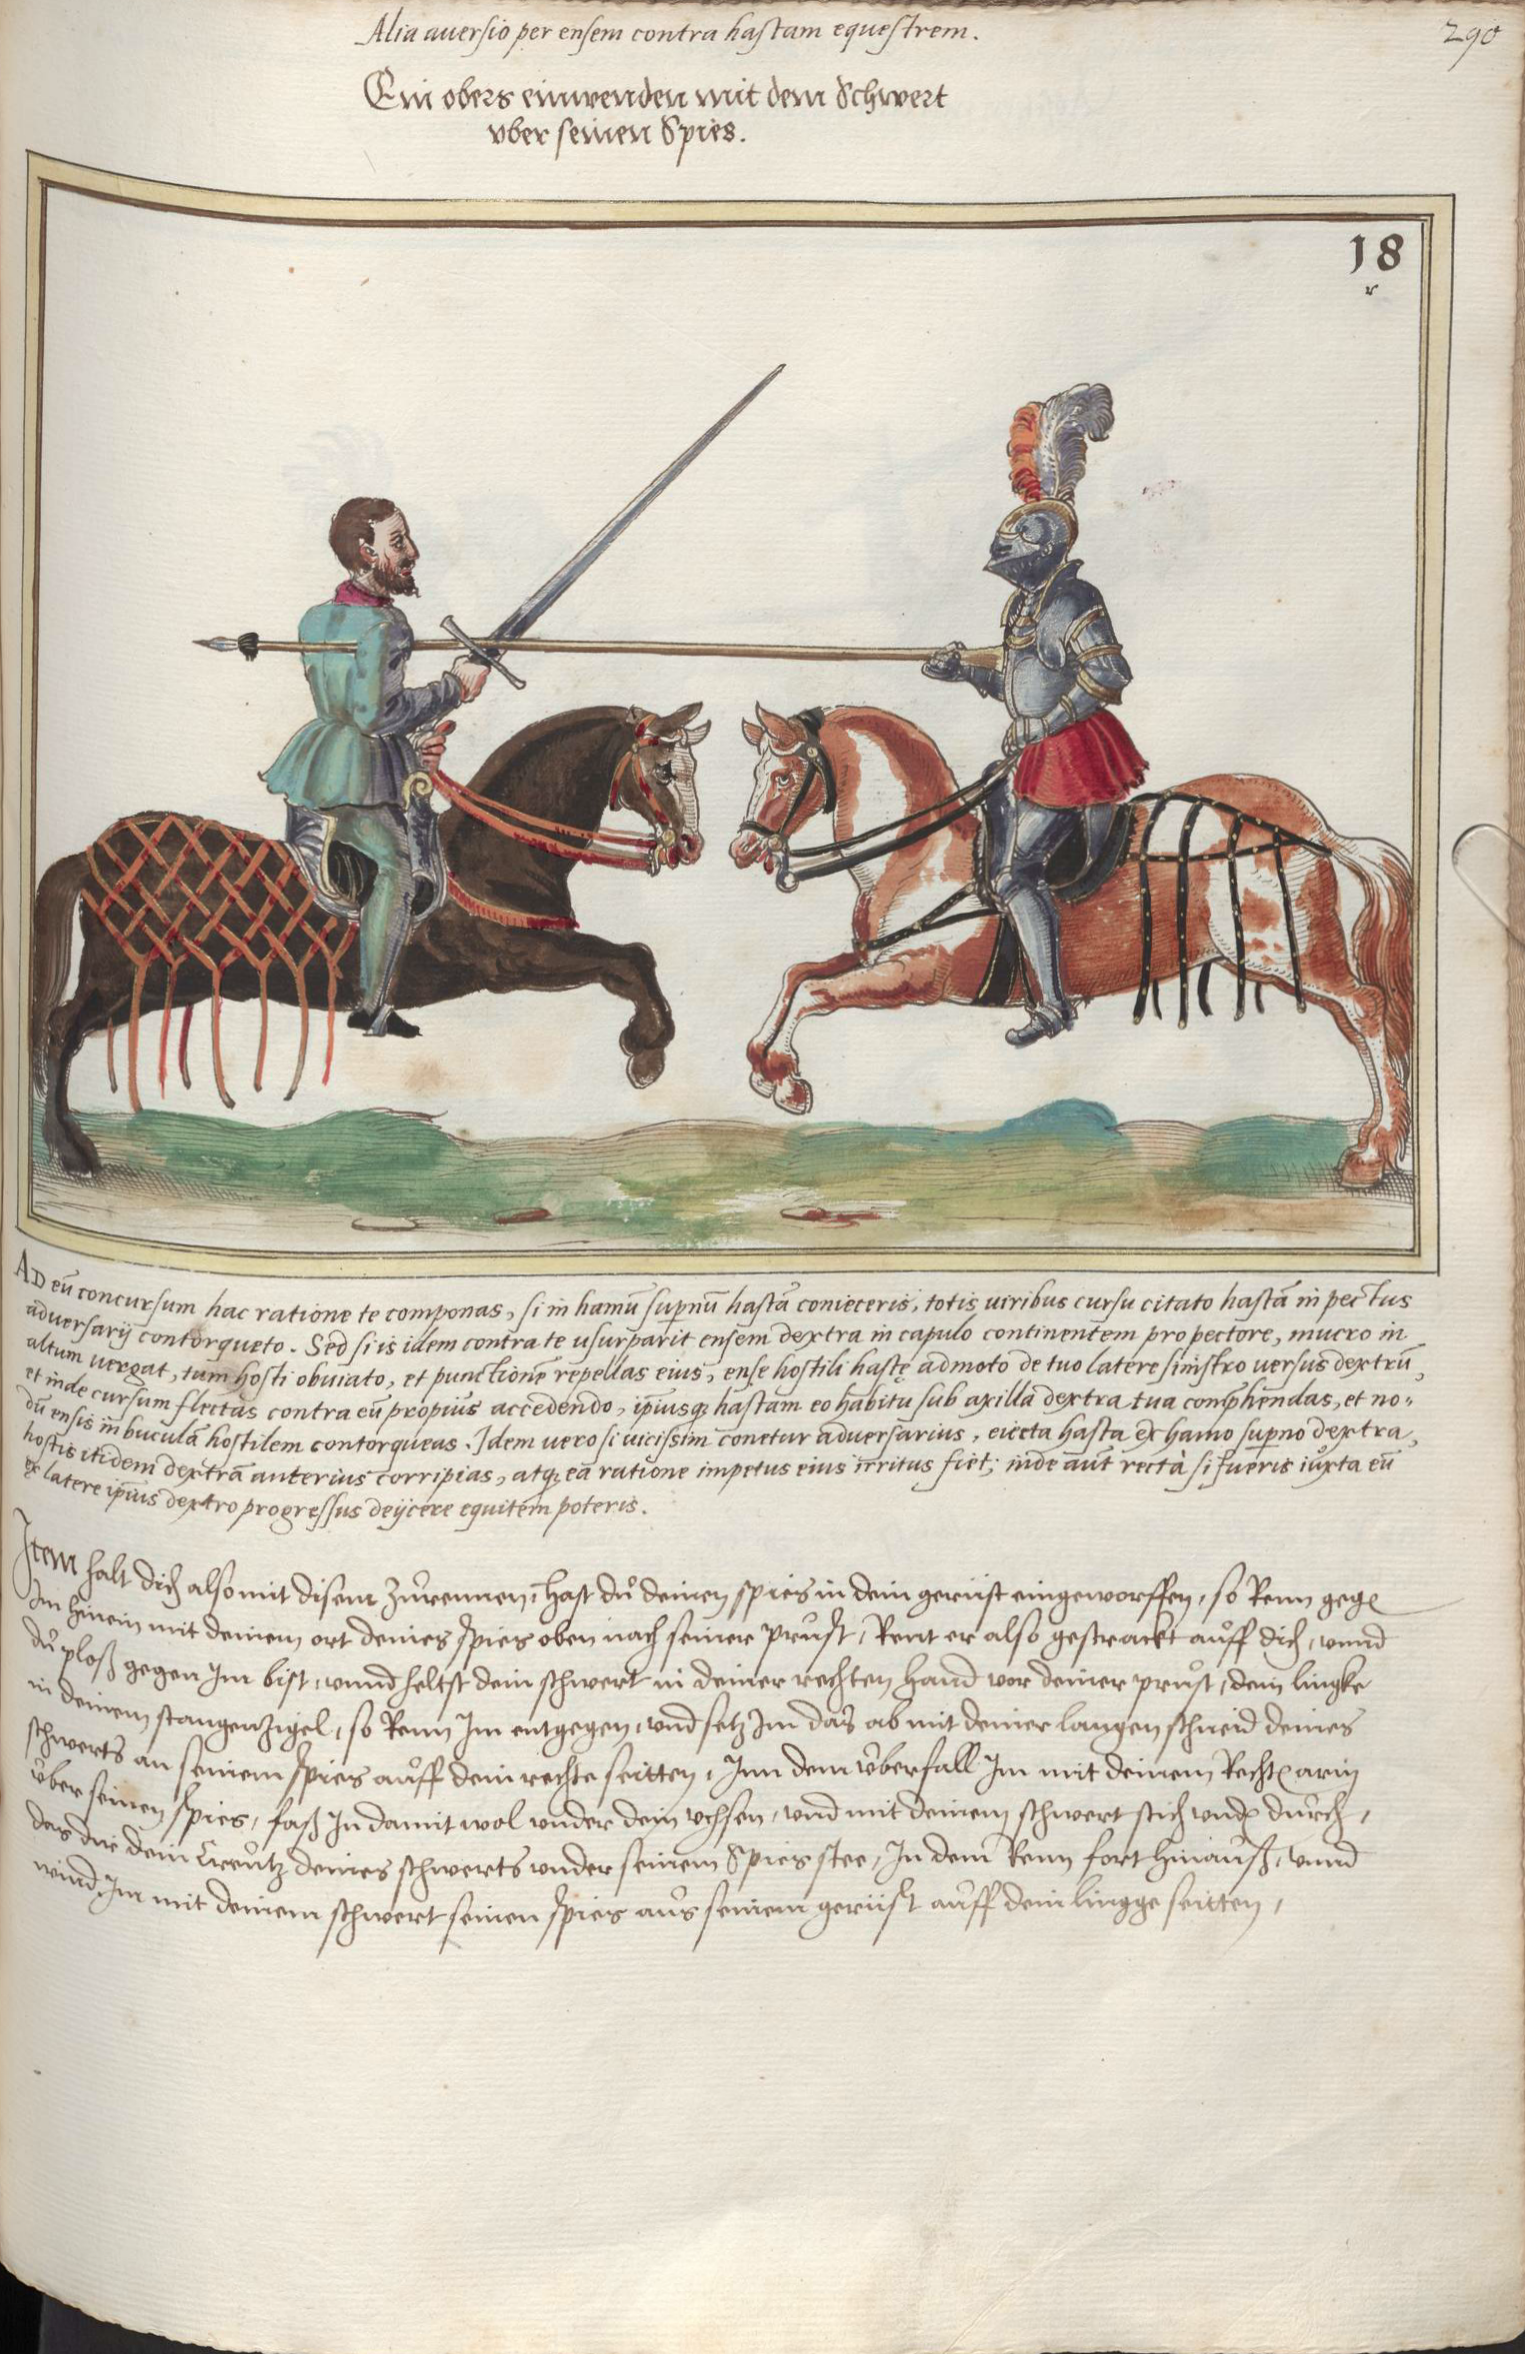 Alia auersio per ensem contra hastam equestrem.
290
Ein obers einwenden mit dem Schwert
vber seinen Spies.
18
AD eū concursum hac ratione te componas, si in hamū supnū hastā conieceris, totis uiribus cursu citato hastā in pectus
aduersarij contorqueto. Sed si is idem contra te usurparit ensem dextra in capulo continentem pro pectore, mucro in
altum uergat, tum hosti obuiato, et punctionē repellas eius, ense hostili hastę admoto de tuo latere sinistro uersus dextrū,
et inde cursum flectas contra eū propius accedendo, ipīusq; hastam eo habitu sub axilla dextra tua comp̄hendas, et no-
dū ensis in buculā hostilem contorqueas. Idem uero si uicissim conetur aduersarius, eiecta hasta ex hamo supno dextra,
hostis itidem dextrā anterius corripias, atq; ea ratione impetus eius irritus fiet; inde aūt rectà si fueris iuxta eū
ex latere ipīus dextro progressus deijcere equitem poteris.
Item halt dich also mit disem Zurennen, hast du deinen spies in dein gerüst eingeworffen, so Renn gegē
Im hinein mit deinem ort deines spies oben nach seiner prust, Rent er also gestrackt auff dich, vnnd
du ploß gegen Im bist, vnnd heltst dein schwert in deiner rechten hand vor deiner prust, dein lingke
in deinem stangen Zigel, so Renn Im entgegen, vnd setz Im das ab mit deiner langen schneid deines
schwerts an seinem spies auff dein rechte seitten, Inn dem vberfall Im mit deinem Rechtē arm
vber seinen spies, faß In damit wol vnder dein vchsen, vnd mit deinem schwert stich vndē durch,
das dir dein Creutz deines schwerts vnder seinem Spies stee, In dem Renn fort hinauß, vnnd
wind Im mit deinem schwert seinen spies aus seinem gerüst auff dein lingge seitten,